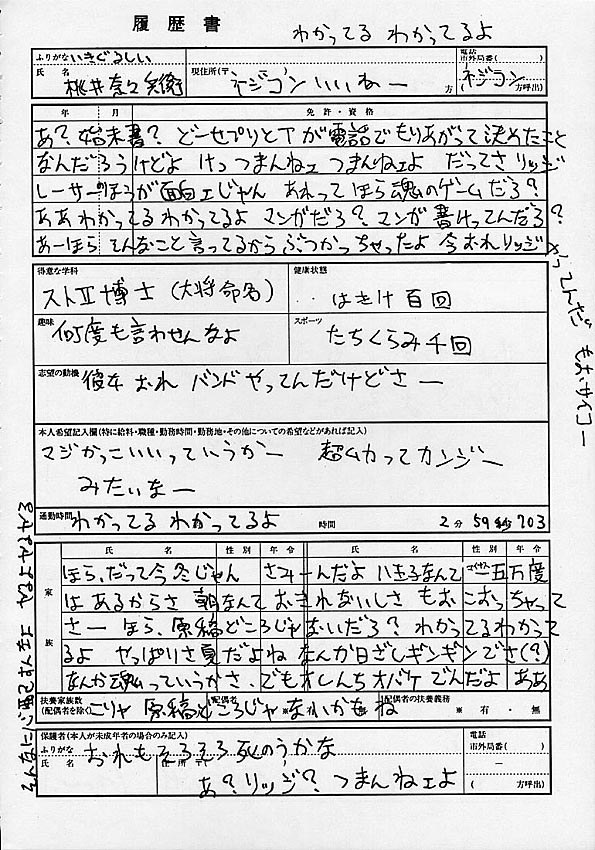 履歴書
わかってる わかってるよ
ふりがな いきぐるしい
電話
市外局番( )
氏名 桃井奈々
現住所(〒 ) ネジコン いいねー 方
ネジコン
( 方呼出)
年 月 免許・資格
あ?始末書? どーせプリとTが電話でもりあがって決めたこと
なんだろうけどよ けっ つまんねェ つまんねェよ だってさ リッジ
レーサーのほうが面白ェじゃん あれって ほら魂のゲームだろ?
ああわかってるわかってるよ マンガだろ? マンガ書けってんだろ?
あーほら そんなこと言ってるからぶつかっちゃったよ 今おれリッジ
やってんだ もおサイコー
得意な学科
ストⅡ博士 (大将命名)
健康状態
‥はきけ百回
趣味
何度も言わせんなよ
スポーツ
たちくらみ千回
志望の動機
彼女 おれ バンドやってんだけどさー
本人希望記入欄(特に給料・職種・勤務時間・勤務地・その他についての希望などがあれば記入)
マジかっこいいっていうかー 超ムカってカンジー
みたいなー
通勤時間 わかってる わかってるよ 時間 2分 59秒 703
家族
氏名 性別 年令 氏名 性別 年令
ほら、だって今冬じゃん さみーんだよ 八王子なんて 一五万度
はあるからさ 朝なんておきれないしさ もおこおっちゃって
さー ほら、原稿どころじゃないだろ? わかってるわかって
るよ やっぱりさ夏だよね なんか日ざしギンギンでさ(?)
なんか魂っていうかさ、でもオレんちオバケでんだよ ああ
扶養家族数
(配偶者を除く)
配偶者
配偶者の扶養義務
※ 有・無
こりゃ 原稿どころじゃないかもね
保護者(本人が未成年者の場合のみ記入)
ふりがな
氏名
住所(〒 )
おれもそろそろ死のうかな
あ?リッジ? つまんねェよ
電話
市外局番( )
( 方呼出)